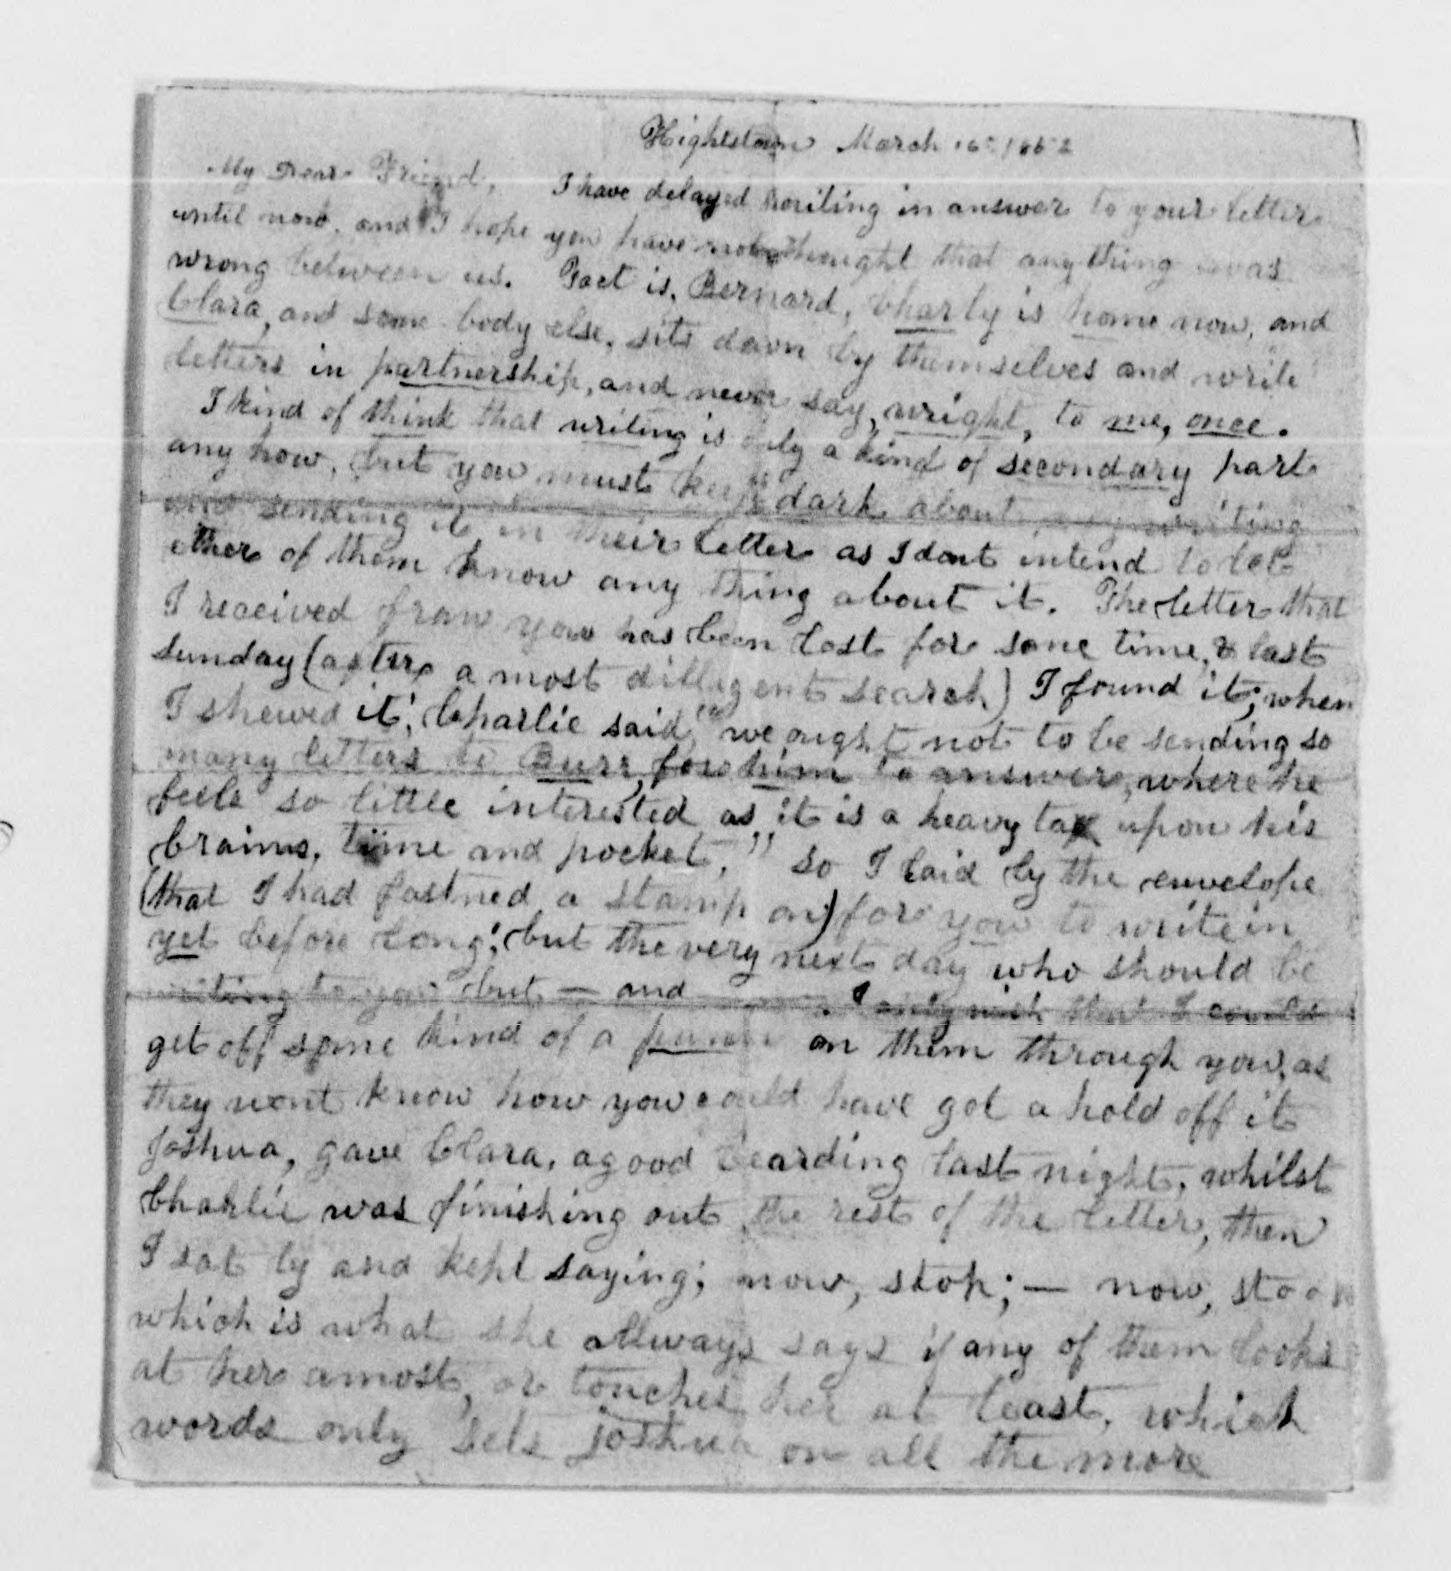 Hightstown March 16th 1852
My Dear Friend, I have delayed writing in answer to your letter
until now, and I hope you have not thought that any thing was
wrong between us. Fact is, Bernard, Charly is home now, and
Clara, and some body else, sits down by themselves and write
letters in partnership, and never say, wright, to me, once.
I kind of think that writing is only a kind of secondary part
any how, but you must keep "dark about my writing
and sending it in their letter as I dont intend to let
ether of them know any thing about it. The letter that
I received from you has been lost for some time, & last
sunday (after a most dilligent search) I found it; when
I shewed it, Charlie said, "we ought not to be sending so
many letters to Burr, for him to answer, where he
feels so little interested as it is a heavy tax upon his
brains, time and pocket," so I laid by the envelope
(that I had fastned a stamp on) for you to write in
yet before long; but the very next day who should be
writing to you but — and I only wish that I could
get off some kind of a punn on them through you, as
they wont know how you could have got a hold off it
Joshua, gave Clara, a good bearding last night, whilst
Charlie was finishing out the rest of the letter, then
I sat by and kept saying; now, stop; — now, stoop
which is what she allways says if any of them looks
at her amost, or touches her at least, which
words only sets Joshua on all the more